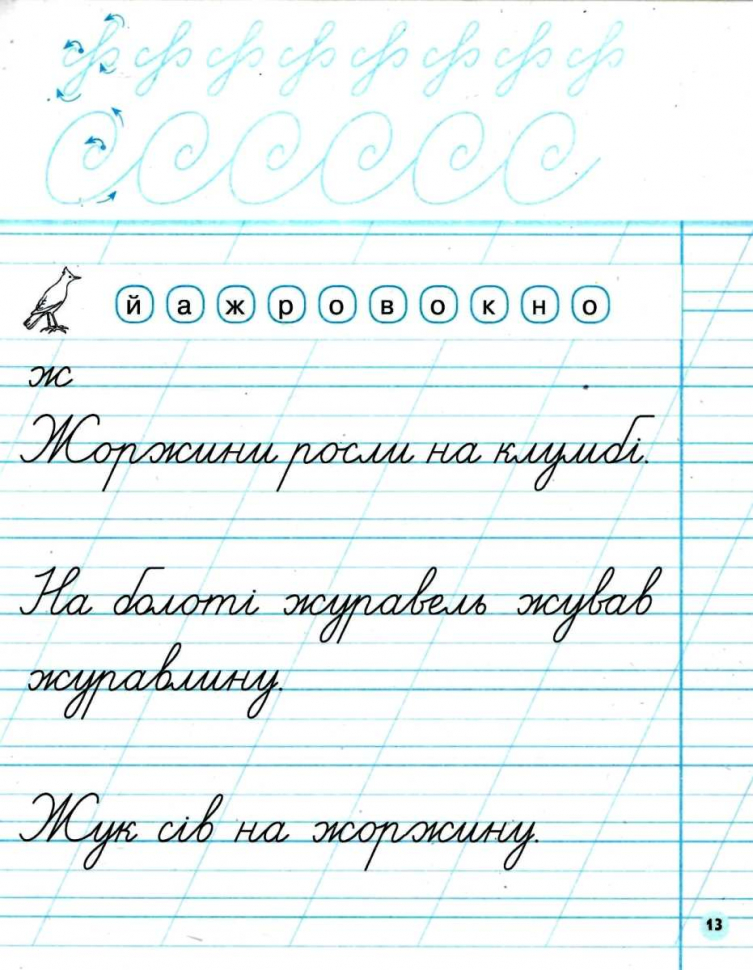 й а ж р о в о к н о
ж
Жоржини росли на клумбі.
На болоті журавель жував
журавлину.
Жук сів на жоржину.
13